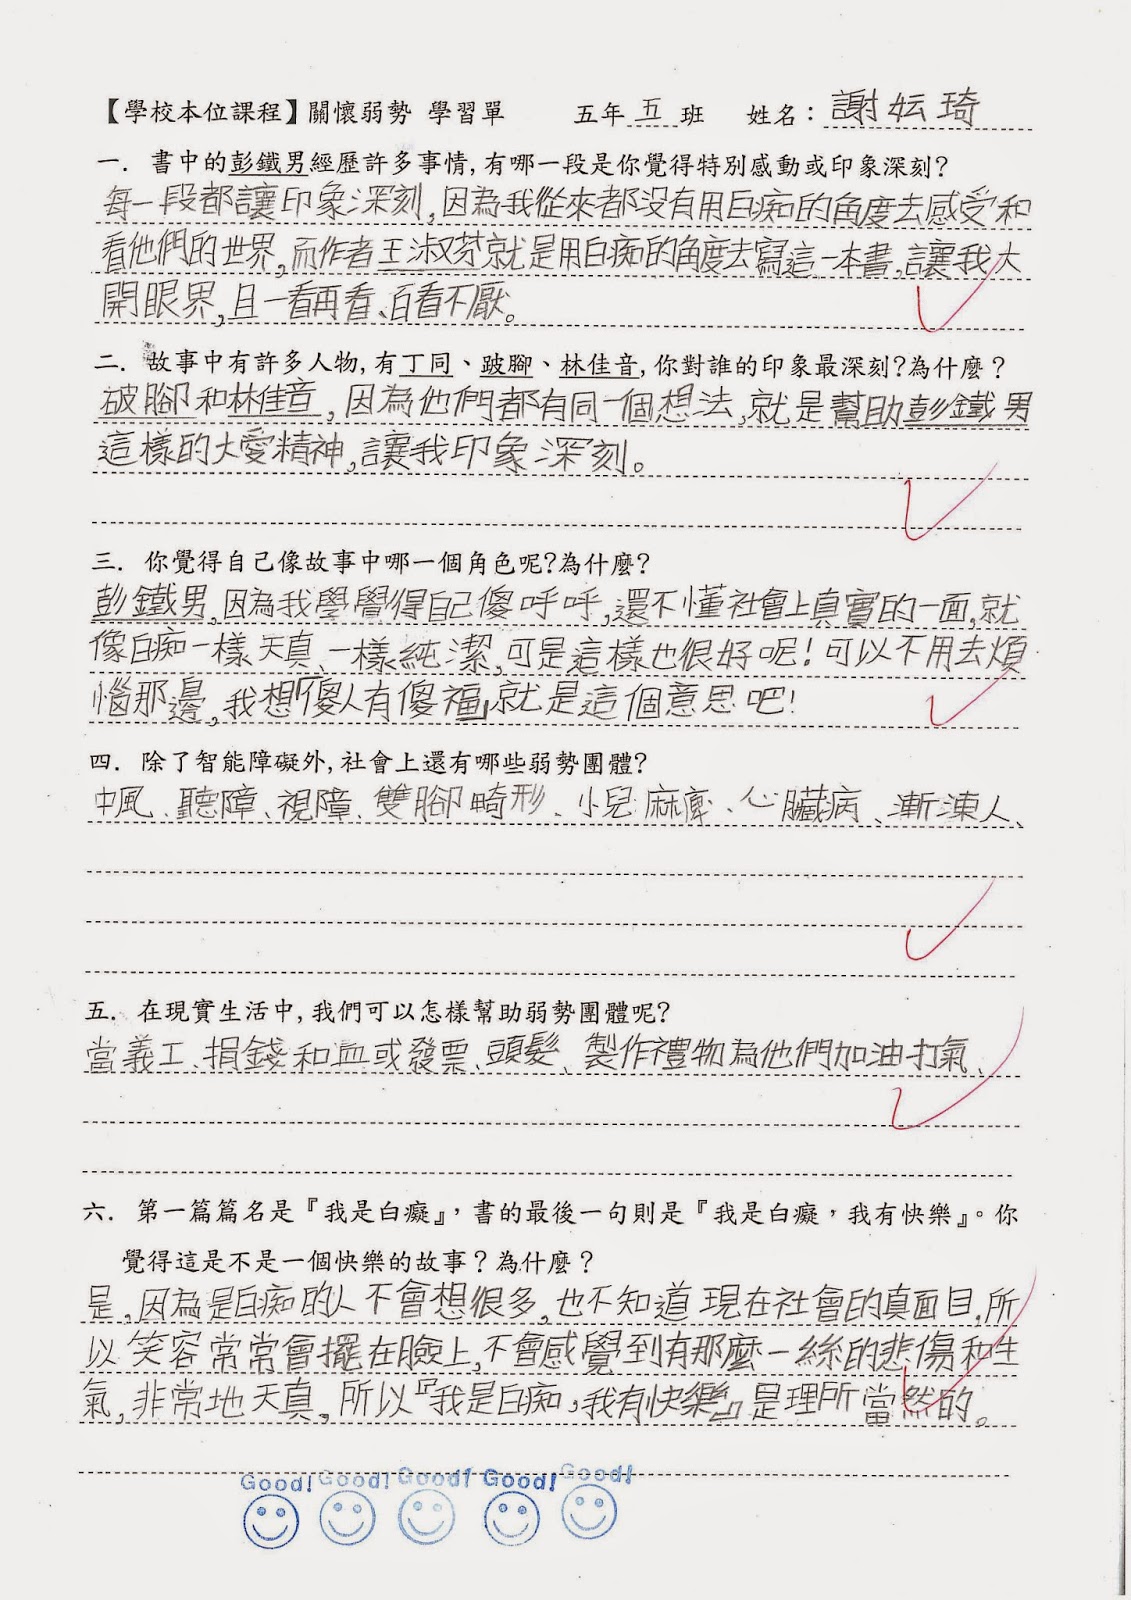 【學校本位課程】關懷弱勢 學習單 五年五班 姓名：謝妘琦
一. 書中的彭鐵男經歷許多事情,有哪一段是你覺得特別感動或印象深刻?
每一段都讓印象深刻,因為我從來都沒有用白痴的角度去感受和
看他們的世界,而作者王淑芬就是用白痴的角度去寫這一本書,讓我大
開眼界,且一看再看、百看不厭。
二. 故事中有許多人物,有丁同、跛腳、林佳音,你對誰的印象最深刻?為什麼?
破腳和林佳音,因為他們都有同一個想法,就是幫助彭鐵男
這樣的大愛精神,讓我印象深刻。
三. 你覺得自己像故事中哪一個角色呢?為什麼?
彭鐵男,因為我學覺得自己傻呼呼,還不懂社會上真實的一面,就
像白痴一樣天真、一樣純潔,可是這樣也很好呢!可以不用去煩
惱那邊,我想「傻人有傻福」就是這個意思吧!
四. 除了智能障礙外,社會上還有哪些弱勢團體?
中風、聽障、視障、雙腳畸形、小兒麻痺、心臟病、漸凍人、
五. 在現實生活中,我們可以怎樣幫助弱勢團體呢?
當義工、捐錢和血或發票、頭髮、製作禮物為他們加油打氣、
六. 第一篇篇名是『我是白癡』，書的最後一句則是『我是白癡，我有快樂』。你
覺得這是不是一個快樂的故事？為什麼？
是,因為是白痴的人不會想很多,也不知道現在社會的真面目,所
以笑容常常會擺在臉上,不會感覺到有那麼一絲的悲傷和生
氣,非常地天真,所以『我是白痴,我有快樂』是理所當然的。
Good! Good! Good! Good! Good!